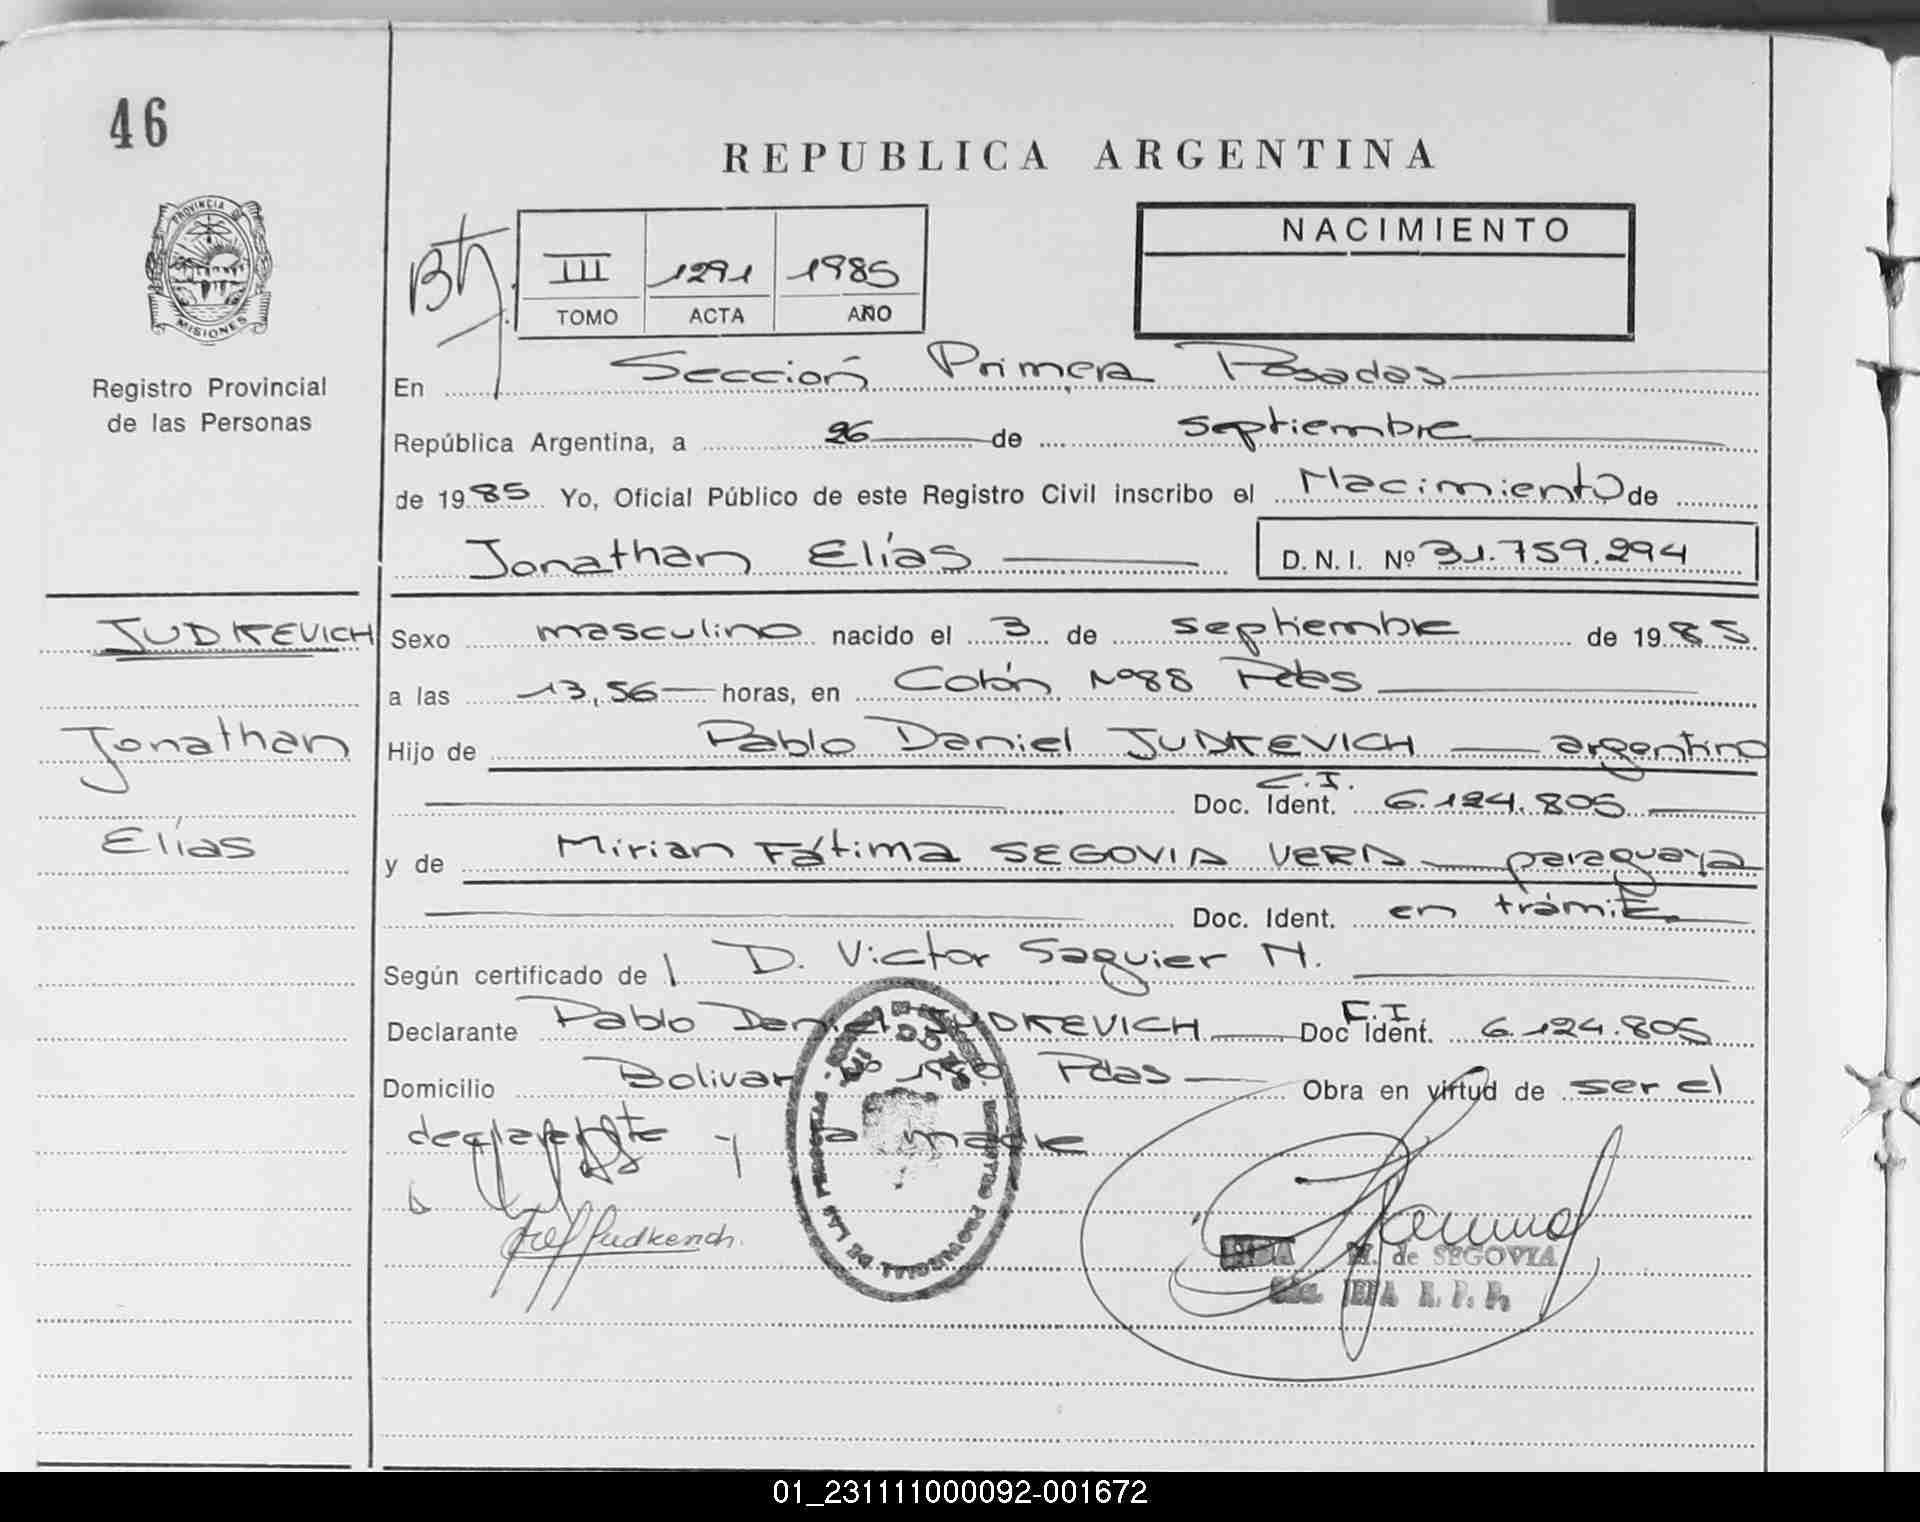 46
REPUBLICA ARGENTINA
PROVINCIA DE
MISIONES
Registro Provincial
de las Personas
III 1291 1985
TOMO ACTA AÑO
NACIMIENTO
En Sección Primera Posadas
República Argentina, a 26 de septiembre
de 1985 Yo, Oficial Público de este Registro Civil inscribo el Nacimiento de
Jonathan Elías D.N.I. Nº 31.759.294
JUDKEVICH
Jonathan
Elías
Sexo masculino nacido el 3 de septiembre de 1985
a las 13,56 horas, en Colón Nº88 Pdas
Hijo de Pablo Daniel JUDKEVICH argentino
C.I.
Doc. Ident. 6.124.805
y de Mirian Fátima SEGOVIA VERA paraguaya
Doc. Ident. en trámite
Según certificado de D. Victor Saguier N.
C.I.
Declarante Pablo Daniel JUDKEVICH Doc Ident. 6.124.805
Domicilio Bolivar Pdas Obra en virtud de ser el
declarante y la madre
Judkevich
M. de SEGOVIA
JEFA R. P. P.
01_231111000092-001672